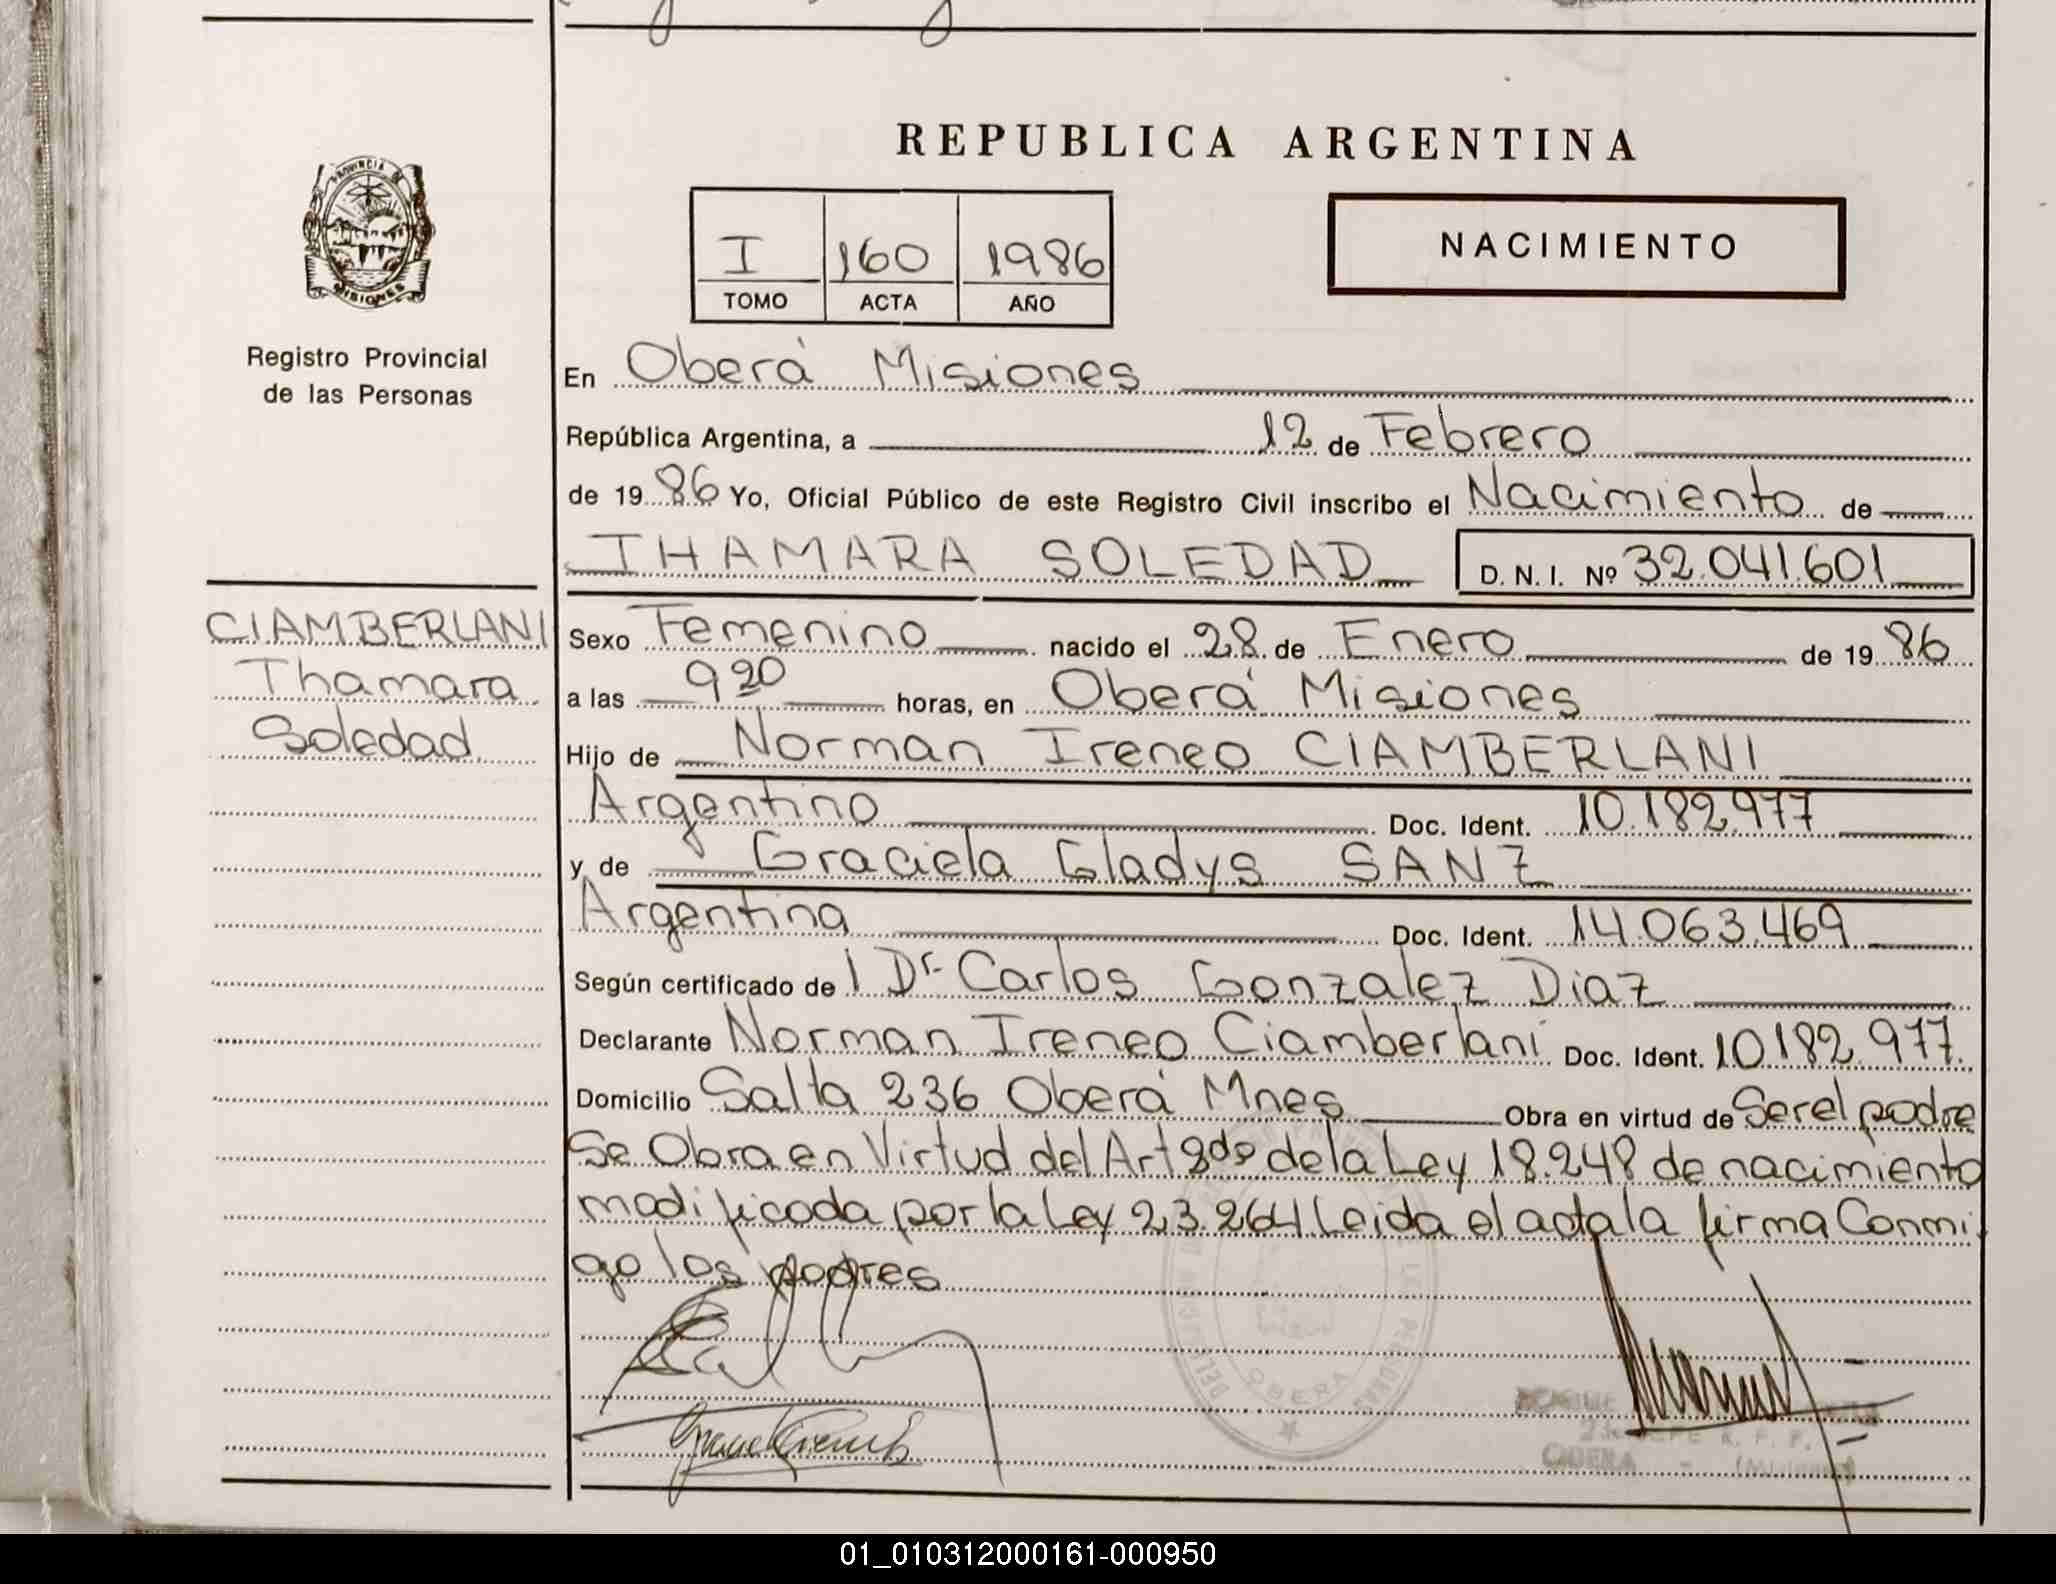 REPUBLICA ARGENTINA
PROVINCIA DE MISIONES
Registro Provincial
de las Personas
I 160 1986
TOMO ACTA AÑO
NACIMIENTO
En Oberá Misiones
República Argentina, a 12 de Febrero
de 1986 Yo, Oficial Público de este Registro Civil inscribo el Nacimiento de
THAMARA SOLEDAD D. N. I. Nº 32.041.601
CIAMBERLANI
Thamara
Soledad
Sexo Femenino nacido el 28 de Enero de 1986
a las 9 20 horas, en Oberá Misiones
Hijo de Norman Ireneo CIAMBERLANI
Argentino Doc. Ident. 10.182.977
y de Graciela Gladys SANZ
Argentina Doc. Ident. 14.063.469
Según certificado de l Dr. Carlos Gonzalez Diaz
Declarante Norman Ireneo Ciamberlani Doc. Ident. 10.182.977.
Domicilio Salta 236 Oberá Mnes Obra en virtud de Ser el padre
Se Obra en Virtud del Art 8do de la Ley 18.248 de nacimiento
modificada por la Ley 23.264 Leida el acta la firma Conmi
go los padres
OBERA
OBERA - (Misiones)
01_010312000161-000950